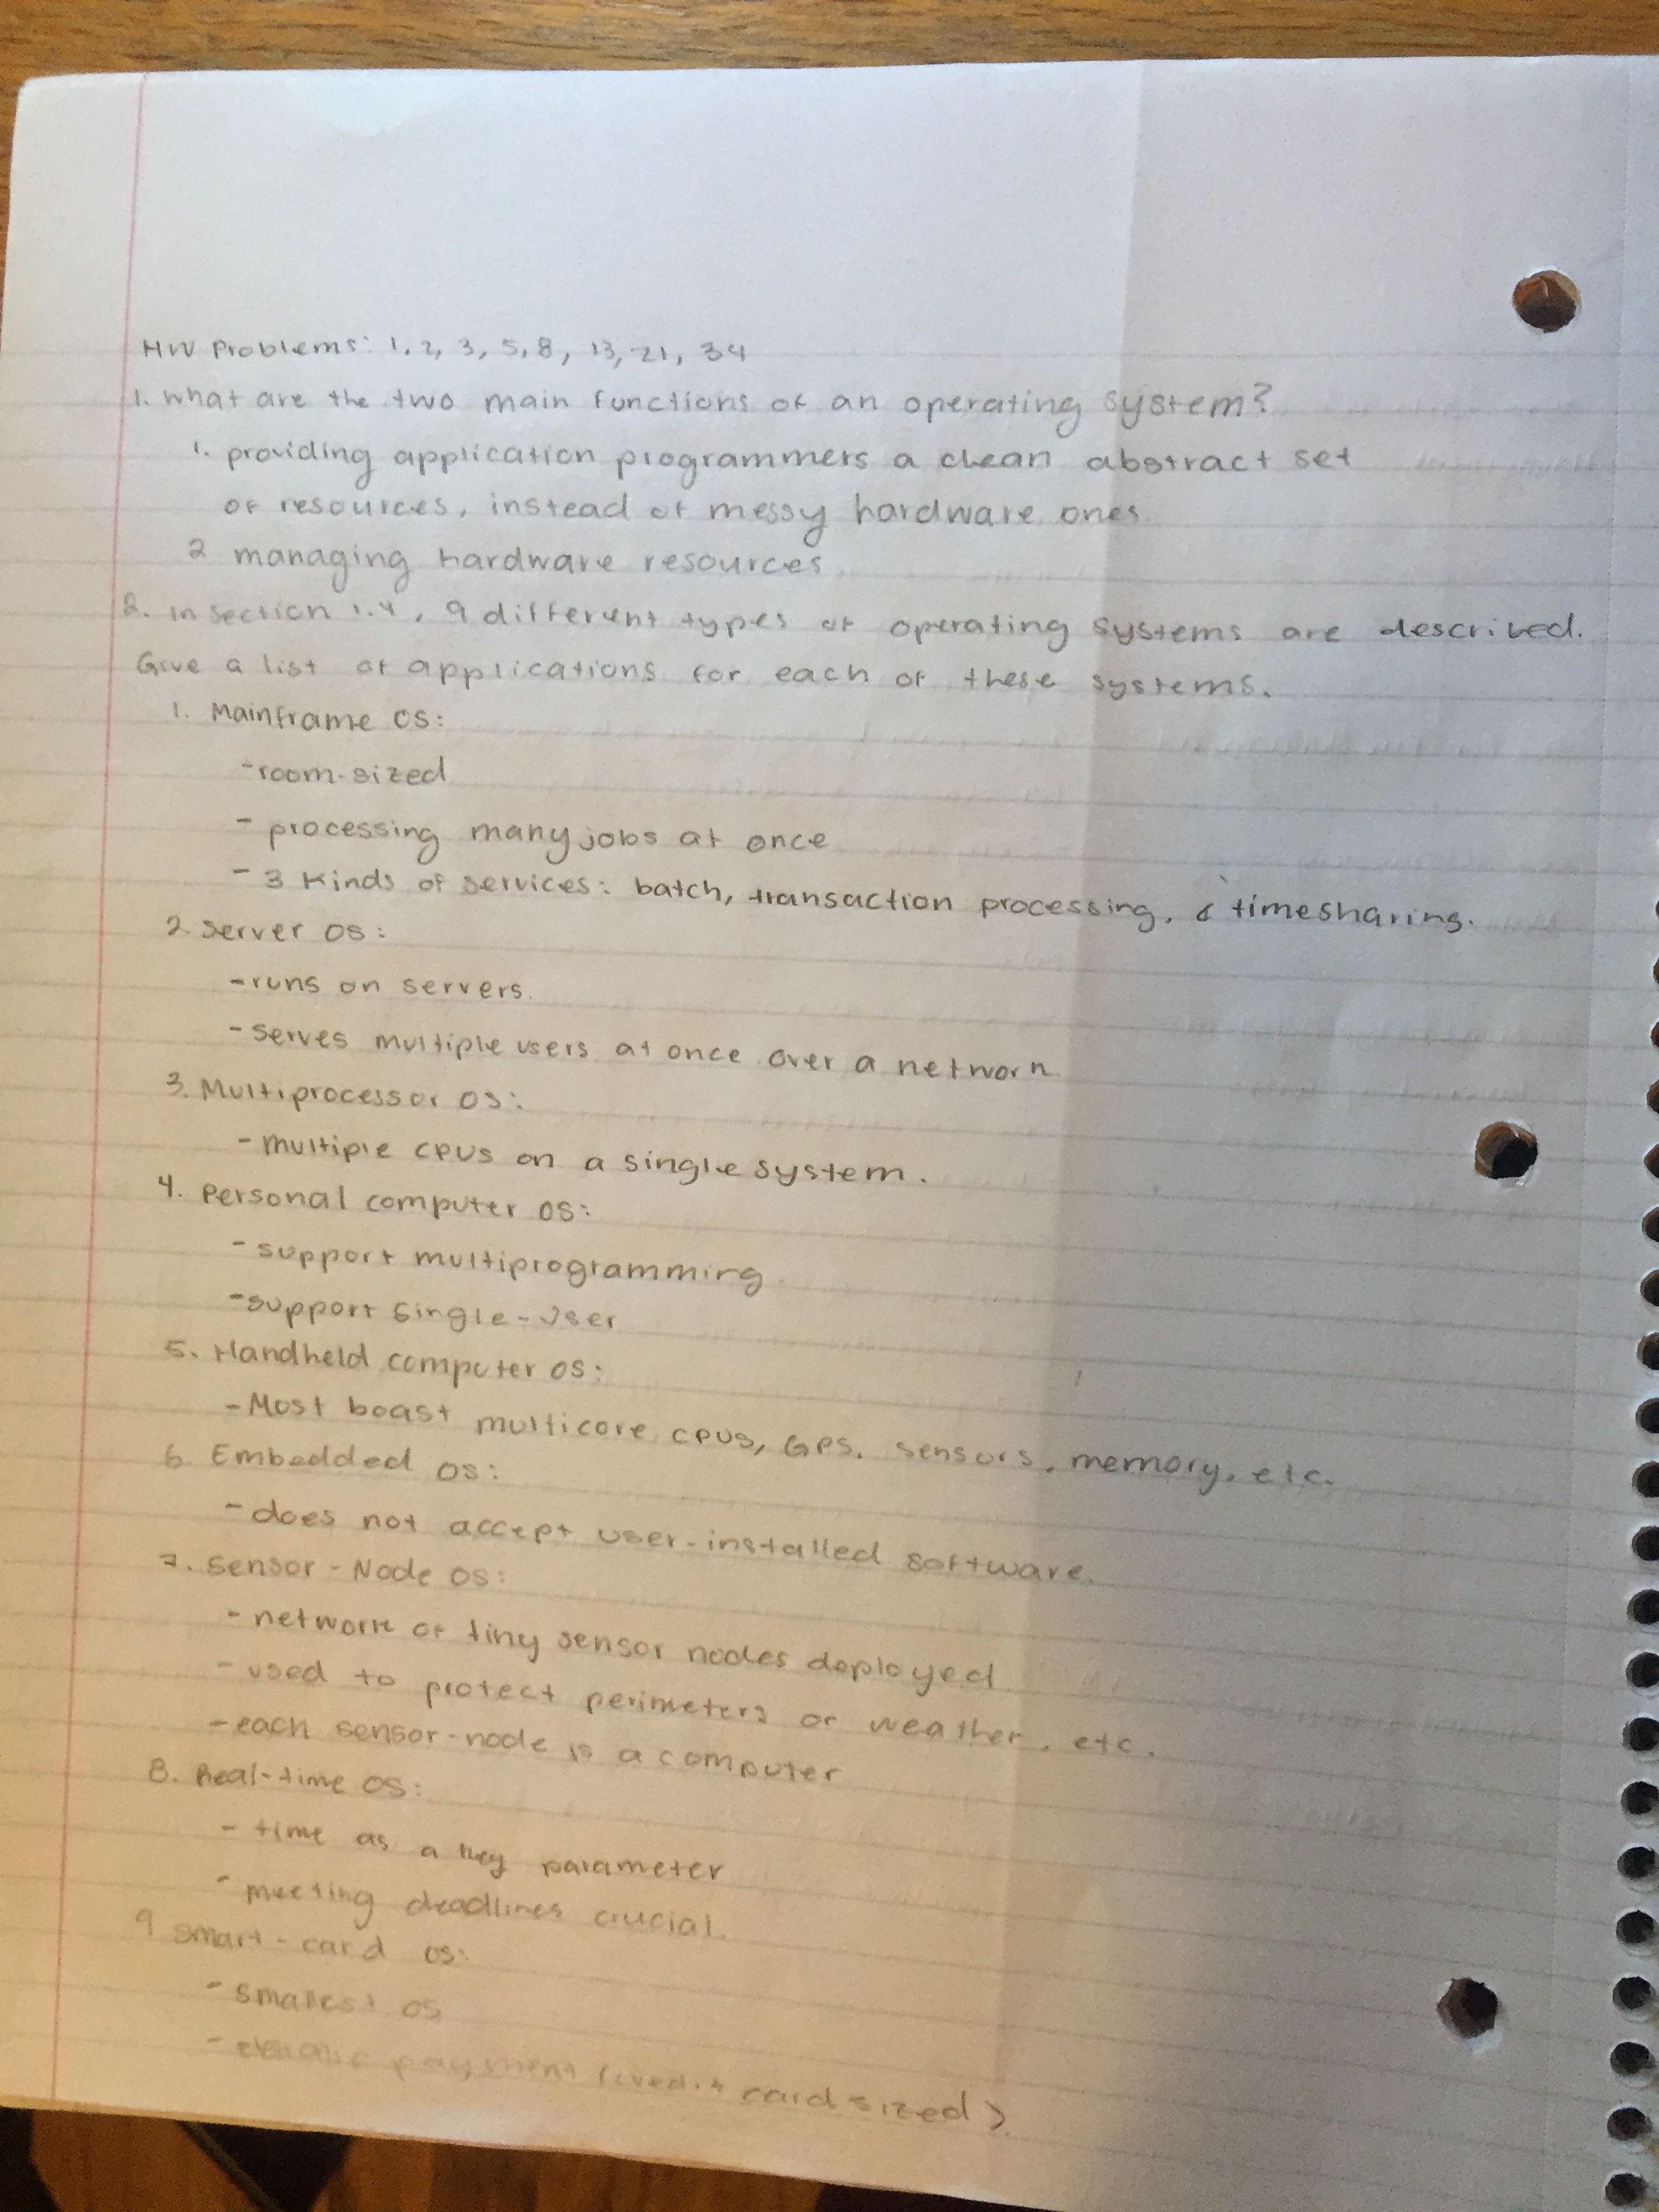 HW Problems: 1, 2, 3, 5, 8, 13, 21, 34
1. What are the two main functions of an operating system?
1. providing application programmers a clean abstract set
of resources, instead of messy hardware ones.
2 managing hardware resources
2. In section 1.4, 9 different types of operating systems are described.
Give a list of applications for each of these systems.
1. Mainframe OS:
- room-sized
- processing many jobs at once
- 3 kinds of services: batch, transaction processing, & timesharing.
2. Server OS:
- runs on servers.
- serves multiple users at once over a network
3. Multiprocessor OS:
- multiple CPUs on a single system.
4. Personal computer OS:
- support multiprogramming.
- support single-user
5. Handheld computer OS:
- Most boast multicore CPUs, GPS, sensors, memory, etc.
6. Embedded OS:
- does not accept user-installed software.
7. Sensor-Node OS:
- network of tiny sensor nodes deployed
- used to protect perimeters or weather, etc.
- each sensor-node is a computer
8. Real-time OS:
- time as a key parameter
- meeting deadlines crucial.
9 Smart-card OS:
- smallest OS
- payment (credit card sized)